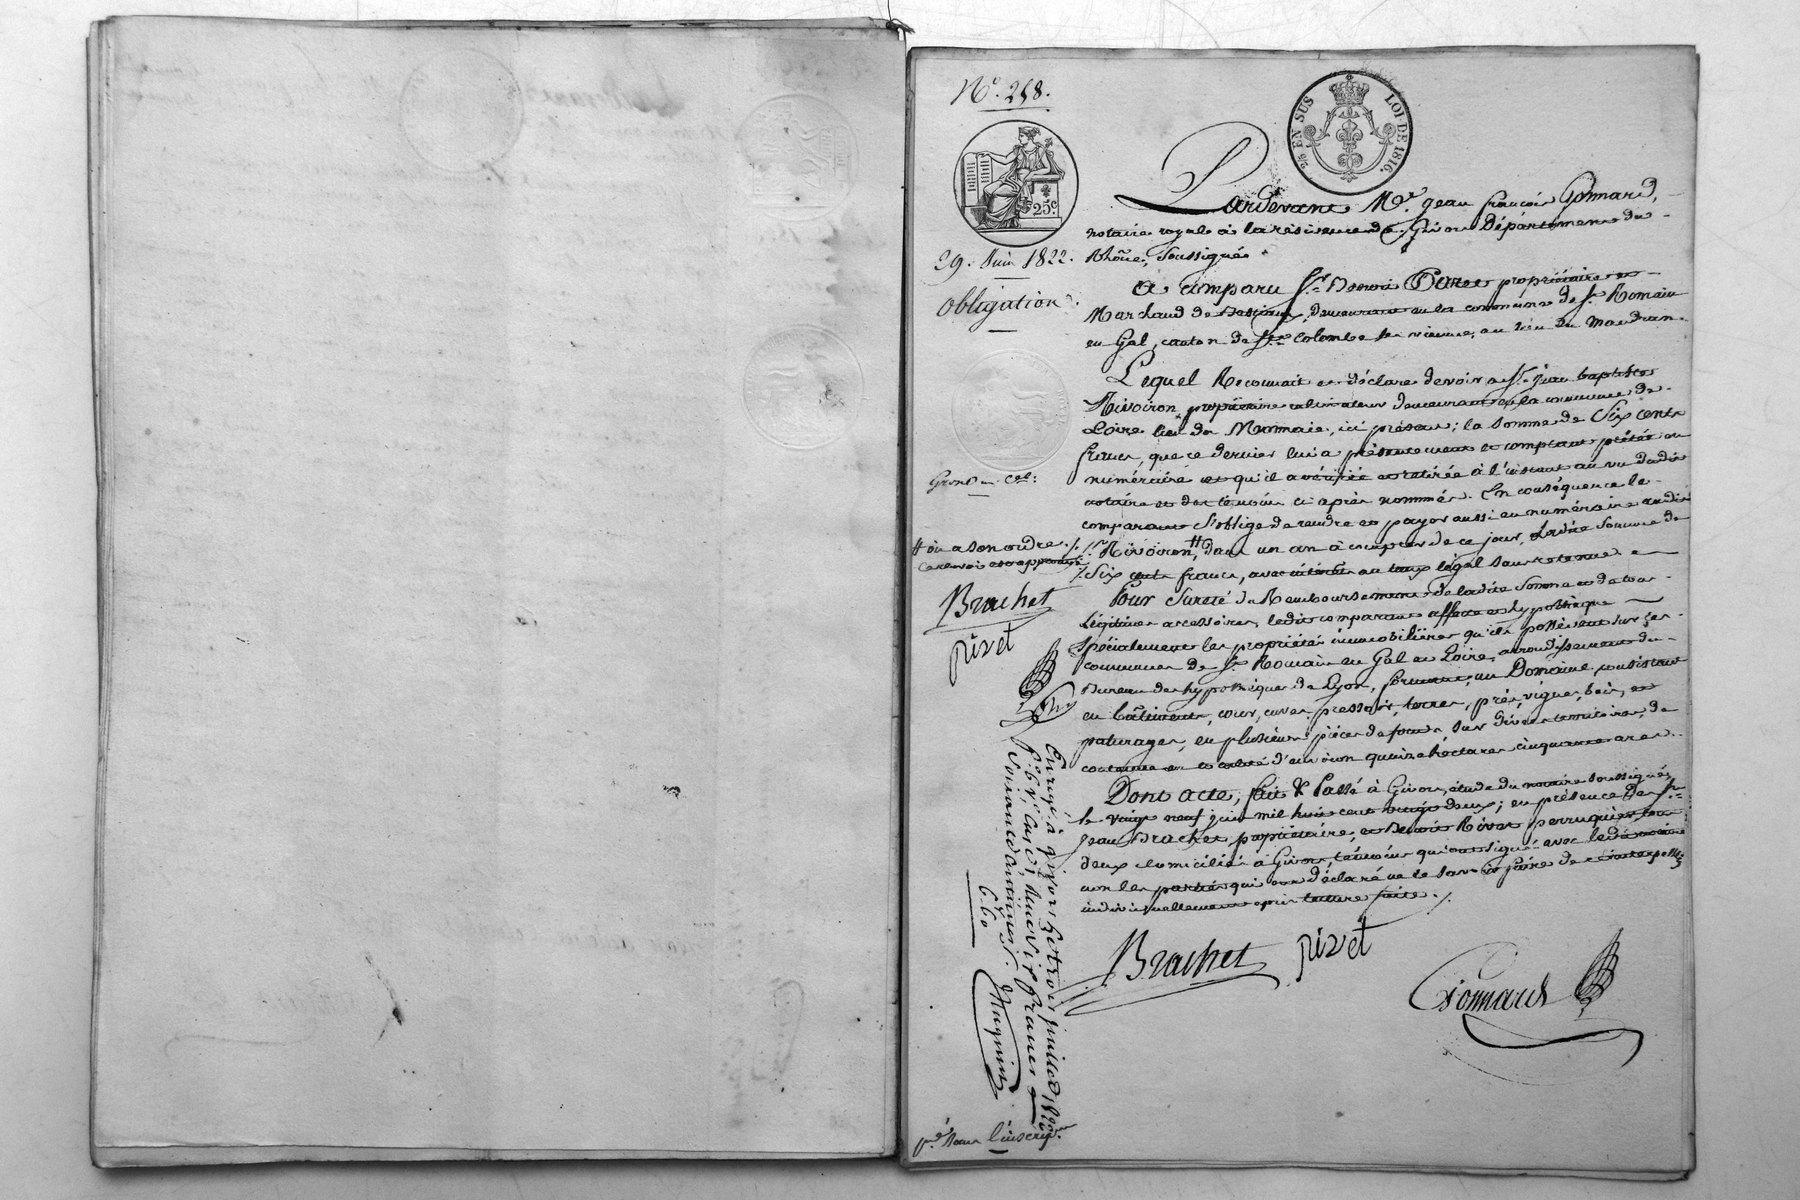 N.° 258.
2/5 EN SUS LOI DE 1816.
25c
29. Juin 1822.
Obligation.
Pardevant M.e Jean françois Gonnard,
notaire royal à la résidence de Givors Département du
Rhône, soussigné
a comparu S.r Benoit propriaitaire et
Marchand de Bestiaux, demeurant en la commune de S.t Romain
en Gal, canton de S.te Colombe les vienne, au lieu du
Lequel Reconnait et déclare devoir a S.r jean baptiste
Rivoiron, propriétaire cultivateur demeurant en la commune de
Loire lieu de Monnaie, ici présent; la somme de Six cents
francs, que ce dernier lui a présentement et comptant prêtée en
numéraire et qu'il a vérifiée et retirée à l'instant au vu dudit
notaire et des témoins ci après nommés. En conséquence le
comparant s'oblige de rendre et payer aussi en numéraire audit
S.r Rivoiron # dans un an à compter de ce jour, ladite somme de
Six cents francs, avec intérêts au taux légal sans retenue
# ou a son ordre ./.
Ce renvoi est approuvé
Brachet
pivet
Pour Sureté du Remboursement de ladite Somme et de tous
légitimes accessoires, ledit comparant affecte et hypothèque
Spécialement les propriétés immobilières qu'il possède sur les
communes de S.t Romain en Gal et Loire, arrondissement du
Bureau des hypothèques de Lyon, formant un Domaine consistant
en bâtiments, cour, cuves, pressoir, terres, prés, vignes, bois, et
paturages, en plusieurs pièces de fonds, sur divers territoires, de
contenue en totalité d'environ quinze hectares cinquante ares.
Dont acte, fait & Passé à Givors, étude du notaire soussigné,
le vingt neuf juin mil huit cent vingt deux; en présence de S.rs
Jean Brachet, propriétaire, et Benoit Pivet perruquier, tous
deux domiciliés à Givors, témoins qui ont signé avec ledit notaire
non les parties qui ont déclaré ne le savoir faire de ce interpellées
individuellement après lecture faite ./.
Brachet pivet
Gonnard
Enrg.é à givors le trois juillet 1822
f.° 6 v.° Case 1, Reçu six francs
Soixante centimes.
6.60
Magnin
p.r l'inscrip.on